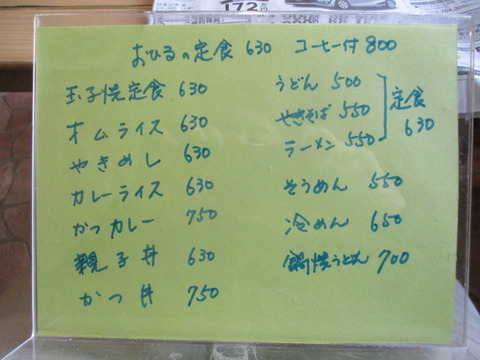 172
おひるの定食 630 コーヒー付 800
玉子焼定食 630
オムライス 630
やきめし 630
カレーライス 630
かつカレー 750
親子丼 630
かつ丼 750
うどん 500
やきそば 550
ラーメン 550
定食 630
そうめん 550
冷めん 650
鍋焼うどん 700